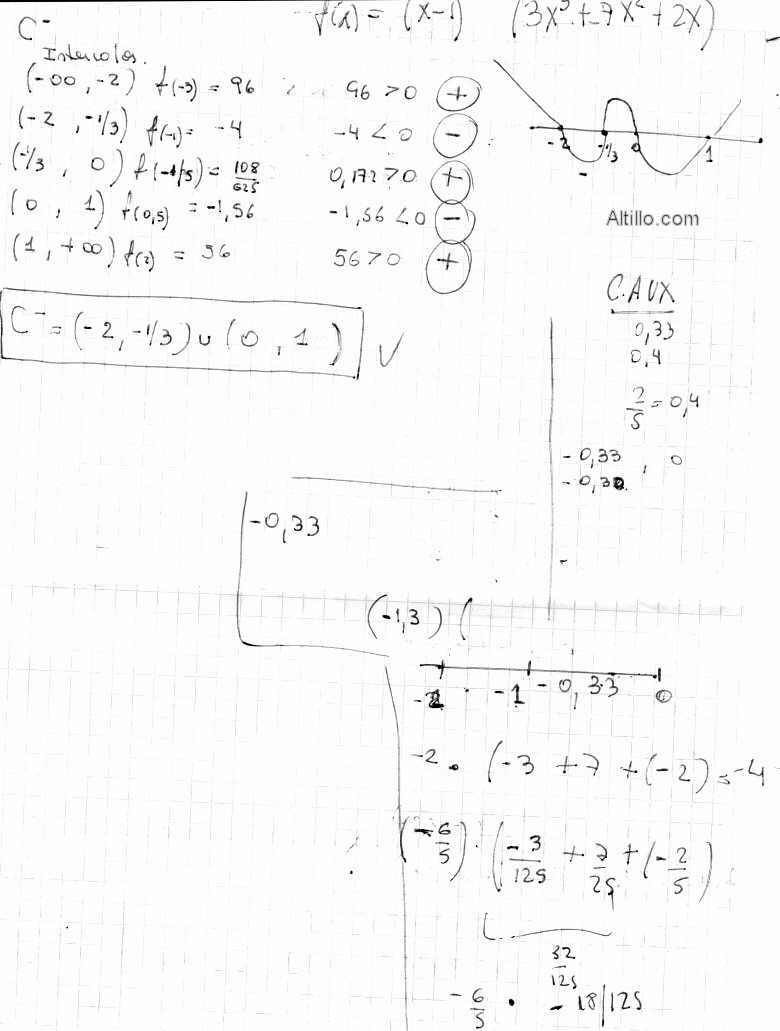 f(x) = (x-1) (3x³ + 7x² + 2x)
C⁻
Intervalos.
(-∞, -2) f(-3) = 96 96 > 0 +
(-2, -1/3) f(-1) = -4 -4 < 0 -
(-1/3, 0) f(-1/5) = 108/625 0,172 > 0 +
(0, 1) f(0,5) = -1,56 -1,56 < 0 -
(1, +∞) f(2) = 56 56 > 0 +
-2 -1/3 0 1
-
Altillo.com
C⁻ = (-2, -1/3) ∪ (0, 1) ✓
C.AUX
0,33
0,4
2/5 = 0,4
-0,33 , 0
-0,32
-0,33
(-1,3) (
-2 -1 -0,33 0
-2 . (-3 + 7 + (-2) = -4
(-6/5) . (-3/125 + 7/25 + (-2/5)
32/125
-6/5 . -18/125